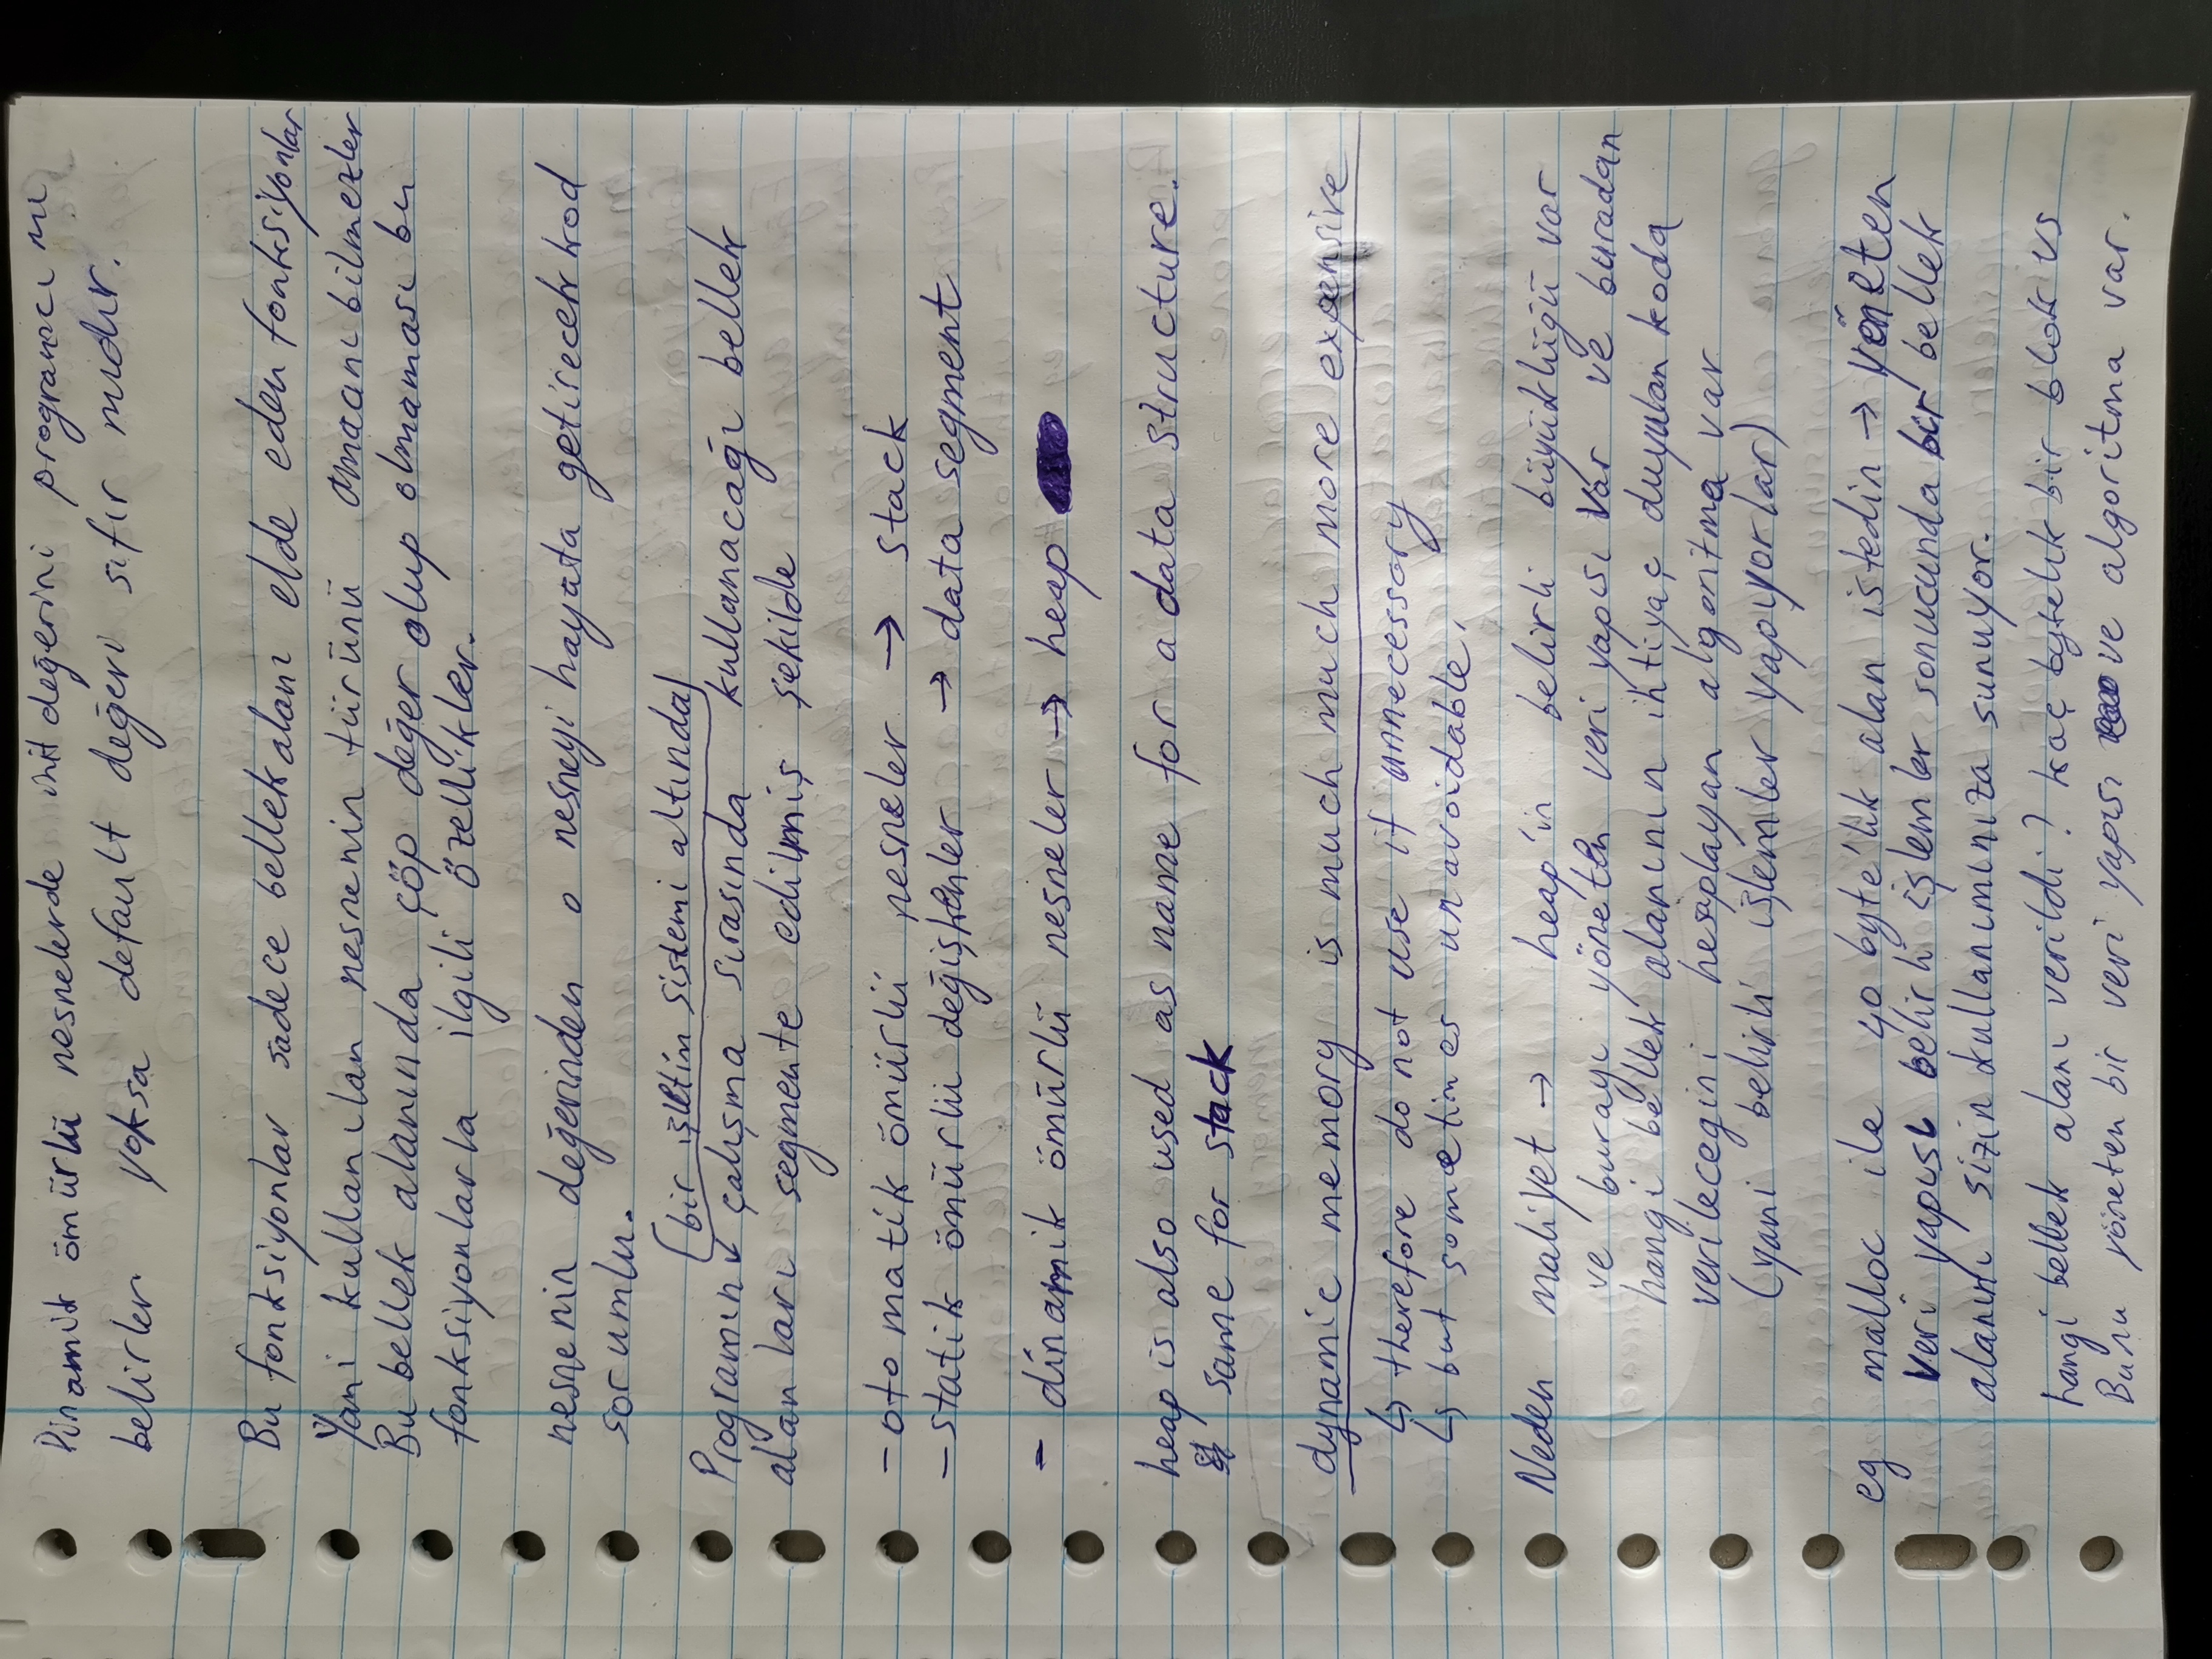 Dinamik ömürlü nesnelerde init değerini programcı mı
belirler yoksa default değeri sıfır mıdır.
Bu fonksiyonlar sadece bellek alanı elde eden fonksiyonlar
Yani kullanılan nesnenin türünü amacını bilmezler
Bu bellek alanında çöp değer olup olmaması bu
fonksiyonlarla ilgili özellikler.
nesnenin değerinden o nesneyi hayata getirecek kod
sorumlu.
(bir işletim sistemi altında)
Programın çalışma sırasında kullanacağı bellek
alanları segmente edilmiş şekilde
- otomatik ömürlü nesneler → stack
- statik ömürlü değişkenler → data segment
- dinamik ömürlü nesneler → heap
heap is also used as name for a data structure.
same for stack
dynamic memory is much much more expensive
↳ therefore do not use if unnecessary
↳ but sometimes unavoidable.
Neden maliyet → heap'in belirli büyüklüğü var
ve burayı yöneten veri yapısı var ve buradan
hangi bellek alanının ihtiyaç duyulan koda
verilecegini hesaplayan algoritma var
(yani belirli işlemler yapıyorlar)
eg malloc ile 40 byte'lık alan istedin → yöneten
veri yapısı belirli işlemler sonucunda bir bellek
alanını sizin kullanımınıza sunuyor.
hangi bellek alanı verildi? kaç bytelık bir blok vs
Bunu yöneten bir veri yapısı ve algoritma var.